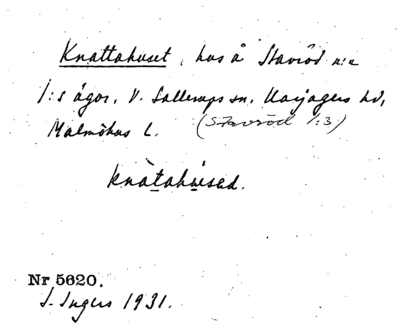 Knattahuset, hus å Stavröd n:r
1:5 ägor, V. Sallerups sn, Harjagers hd,
Malmöhus L. (Stavröd 1:3)
knàtahùsed.
Nr 5620.
I. Ingers 1931.